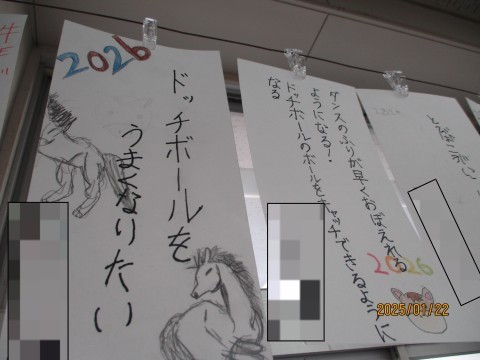 2026
ドッチボールを
うまくなりたい
ダンスのふりが早くおぼえれる
ようになる!
ドッチボールのボールをキャッチできるように
なる
2026
2025/01/22